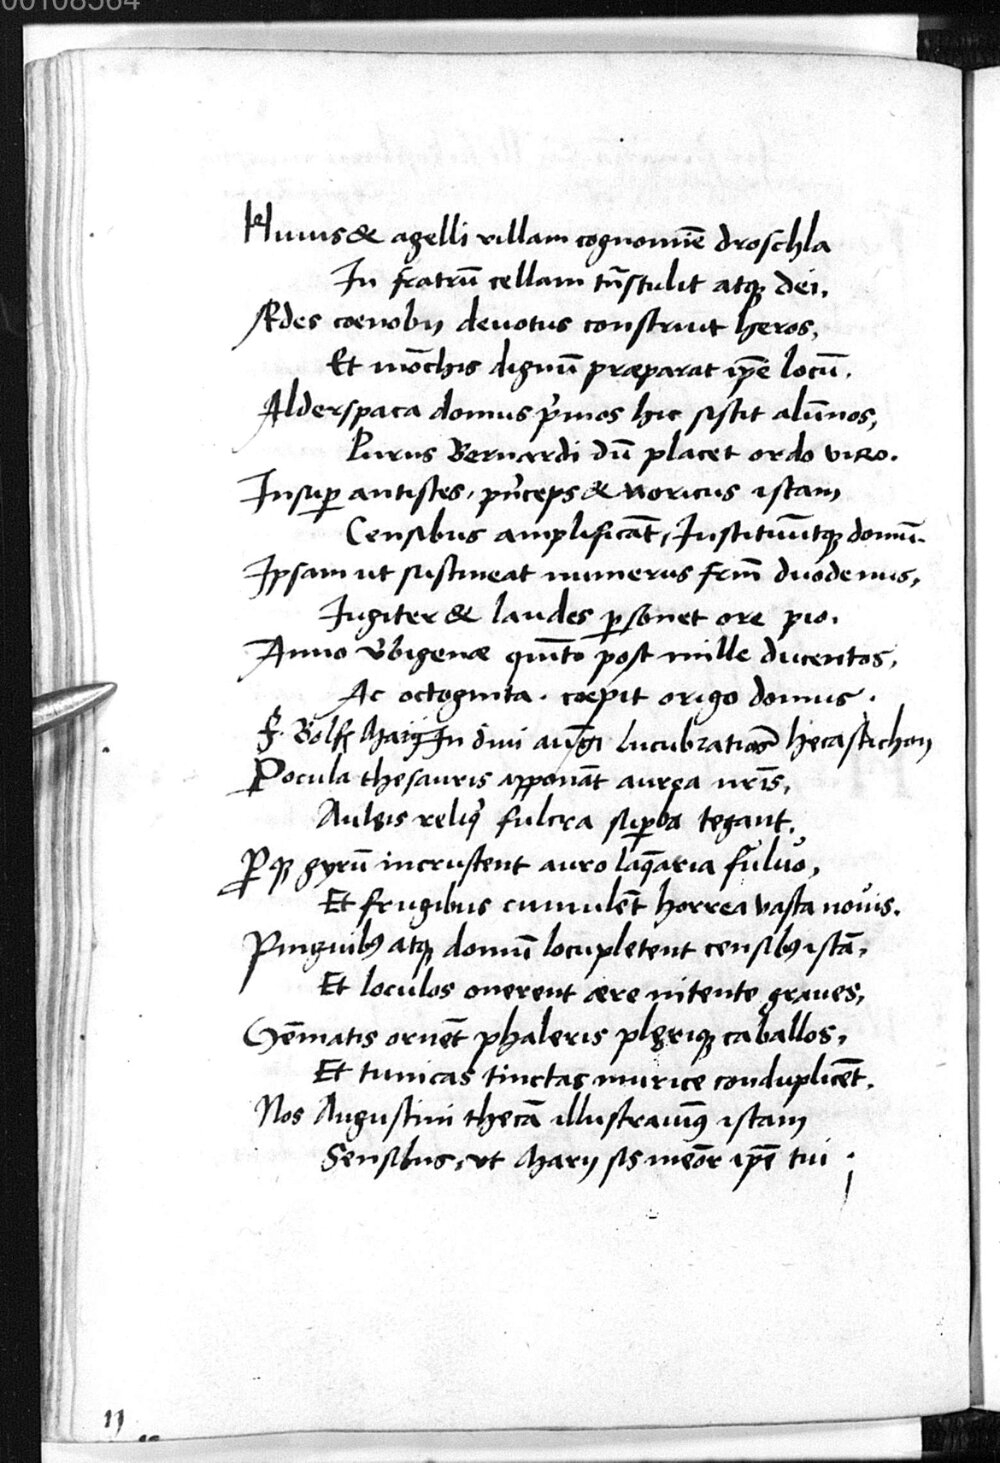 00108564
Huius & agelli villam cognomīe droschla
In fratrū cellam trā̄stulit atq; dei,
Ædes coenobij deuotus construit heros,
Et mōchis dignū præparat ip̄e locū.
Alderspaca domus p̄mos hic sistit alūnos,
Purus Bernardi dū placet ordo viro.
Insup antistes, p̄nceps & noricus istam
Censibus amplificāt, Instituūtq; domū.
Ipsam ut sustineat numerus frm̄ duodenus,
Iugiter & laudes psonet ore pio.
Anno v̄bigenæ quīto post mille ducentos,
Ac octoginta. coepit origo domus.
F. Bolfg Marij In diui aug̃i lucubratiōes hecastichon
Pocula thesauris apponāt aurea nr̄is,
Aulęis reliq̄ fulcra supba tegant.
Pq; gyrū incrustent auro laq̄aria fuluo,
Et frugibus cumulēt horrea vasta nouis.
Pinguib9 atq; domū locupletent censib9 istā,
Et loculos onerent ære nitente graues,
Gēmatis ornēt phaleris pleriq; caballos,
Et tunicas tinctas murice conduplicēt.
Nos Augustini thecā illustrauim9 istam
Sensibus, ut Marij sis meōr ip̄e tui;
11